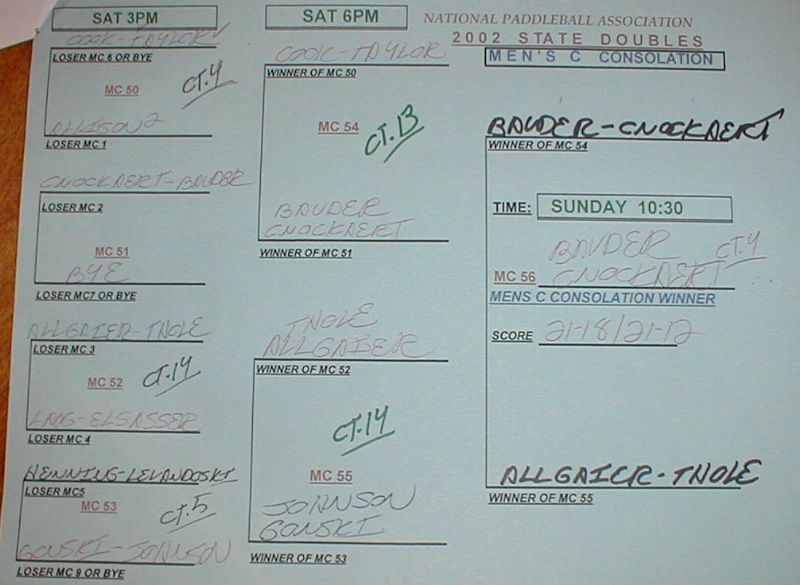 SAT 3PM
COOK-TAYLOR
LOSER MC 6 OR BYE
MC 50
CT.4
ALLISON2
LOSER MC 1
CNOCKAERT-BAUDER
LOSER MC 2
MC 51
BYE
LOSER MC7 OR BYE
ALLGAIER-TNOLE
LOSER MC 3
MC 52
CT.14
LANG-ELSASSER
LOSER MC 4
HENNING-LEVANDOSKI
LOSER MC5
MC 53
CT.5
GONSKI-JOHNSON
LOSER MC 9 OR BYE
SAT 6PM
COOK-TAYLOR
WINNER OF MC 50
MC 54
CT.13
BAUDER
CNOCKAERT
WINNER OF MC 51
TNOLE
ALLGAIER
WINNER OF MC 52
CT.14
MC 55
JOHNSON
GONSKI
WINNER OF MC 53
NATIONAL PADDLEBALL ASSOCIATION
2002 STATE DOUBLES
MEN'S C CONSOLATION
BAUDER-CNOCKAERT
WINNER OF MC 54
TIME: SUNDAY 10:30
BAUDER CT.4
MC 56 CNOCKAERT
MENS C CONSOLATION WINNER
SCORE 21-18/21-12
ALLGAIER-TNOLE
WINNER OF MC 55